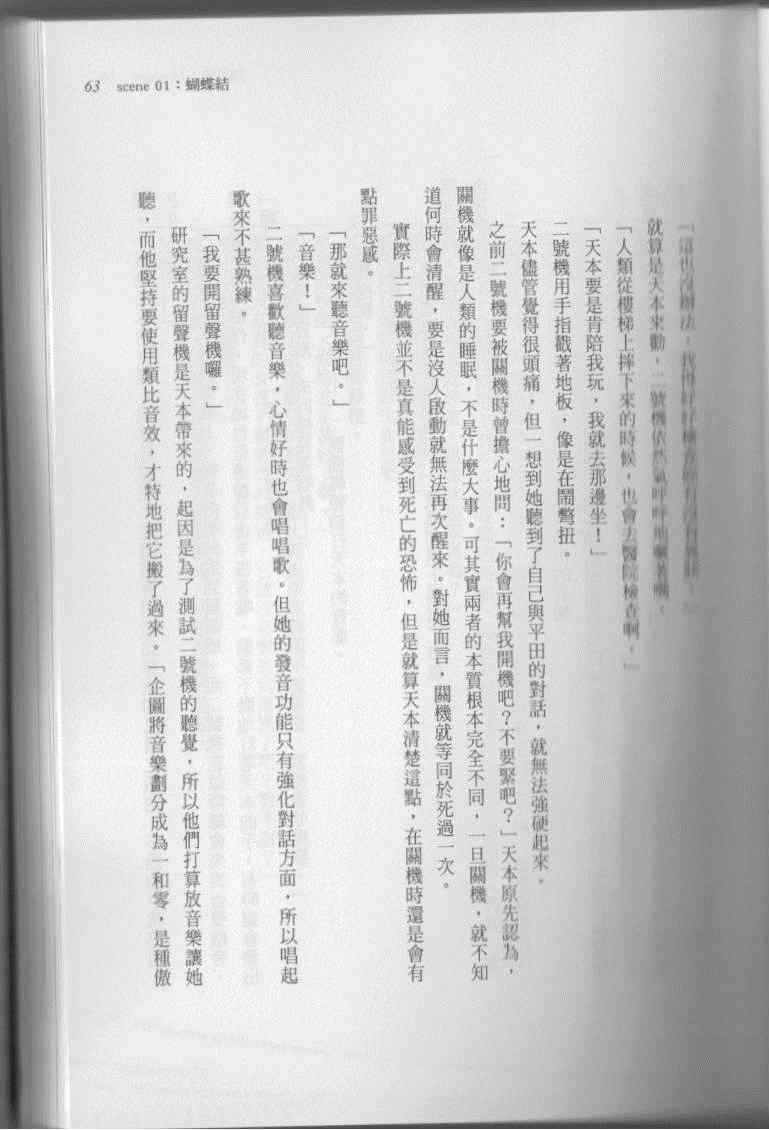 63 scene 01：蝴蝶結
就算是天本來勸，二號機依然氣呼呼地
「人類從樓梯上摔下來的時候，也會去醫院檢查啊。」
「天本要是肯陪我玩，我就去那邊坐！」
二號機用手指戳著地板，像是在鬧彆扭。
天本儘管覺得很頭痛，但一想到她聽到了自己與平田的對話，就無法強硬起來。
之前二號機要被關機時曾擔心地問：「你會再幫我開機吧？不要緊吧？」天本原先認為，
關機就像是人類的睡眠，不是什麼大事。可其實兩者的本質根本完全不同，一旦關機，就不知
道何時會清醒，要是沒人啟動就無法再次醒來。對她而言，關機就等同於死過一次。
實際上二號機並不是真能感受到死亡的恐怖，但是就算天本清楚這點，在關機時還是會有
點罪惡感。
「那就來聽音樂吧。」
「音樂！」
二號機喜歡聽音樂，心情好時也會唱唱歌。但她的發音功能只有強化對話方面，所以唱起
歌來不甚熟練。
「我要開留聲機囉。」
研究室的留聲機是天本帶來的，起因是為了測試二號機的聽覺，所以他們打算放音樂讓她
聽，而他堅持要使用類比音效，才特地把它搬了過來。「企圖將音樂劃分成為一和零，是種傲